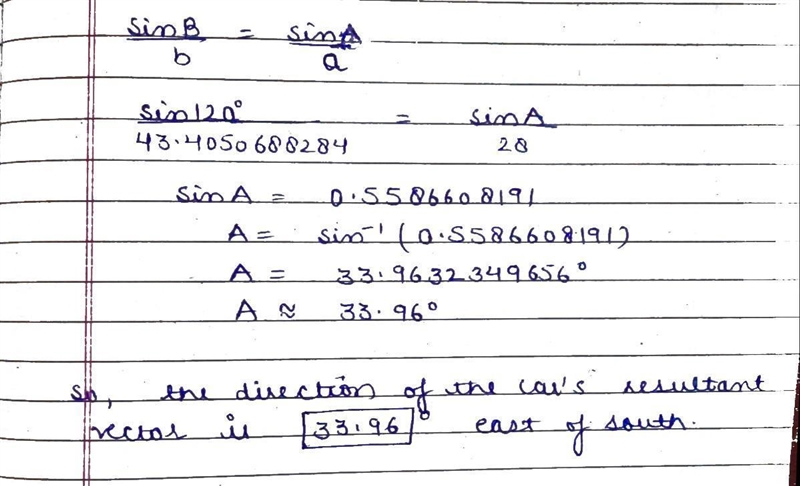 sinB = sinA
b a
sin120° = sinA
43.4050688284 28
sinA = 0.5586608191
A = sin⁻¹(0.5586608191)
A = 33.9632349656°
A ≈ 33.96°
So, the direction of the car's resultant
vector is 33.96° east of south.